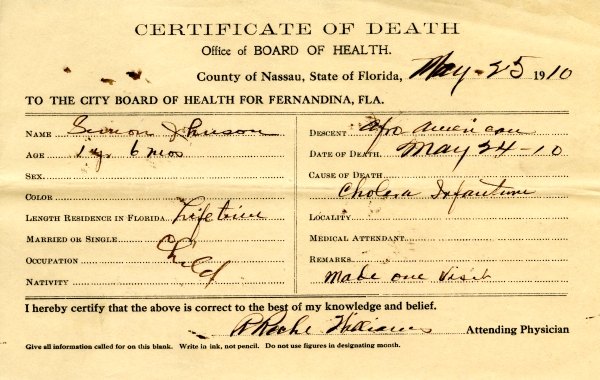 CERTIFICATE OF DEATH
Office of BOARD OF HEALTH.
County of Nassau, State of Florida, May 25 1910
TO THE CITY BOARD OF HEALTH FOR FERNANDINA, FLA.
NAME Simon Johnson
AGE 1 y. 6 mos
SEX
COLOR
LENGTH RESIDENCE IN FLORIDA Lifetime
MARRIED OR SINGLE
OCCUPATION Child
NATIVITY
DESCENT Afro American
DATE OF DEATH May 24-10
CAUSE OF DEATH
Cholera Infantum
LOCALITY
MEDICAL ATTENDANT
REMARKS
Made one Visit
I hereby certify that the above is correct to the best of my knowledge and belief.
Williams Attending Physician
Give all information called for on this blank. Write in ink, not pencil. Do not use figures in designating month.